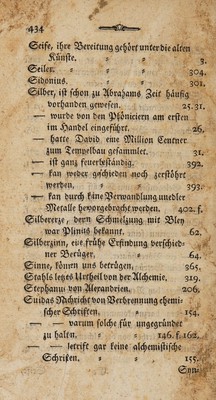 434
Seife, ihre Bereitung gehört unter die alten
Künste. 3.
Seiler. 304.
Sidonius. 301.
Silber, ist schon zu Abrahams Zeit häufig
vorhanden gewesen. 25. 31.
— wurde von den Phöniciern am ersten
im Handel eingeführt. 26.
— hatte David eine Million Centner
zum Tempelbau gesammlet. 31.
— ist ganz feuerbeständig. 392.
— kan weder geschieden noch zerstöhrt
werden. 393.
— kan durch keine Verwandlung unedler
Metalle hervorgebracht werden. 402. f.
Silbererze, deren Schmelzung mit Bley
war Plinus bekannt. 62.
Silberzinn, eine frühe Erfindung verschied-
ner Berüger. 64.
Sinne, können uns betrügen. 365.
Stahls letztes Urtheil von der Alchemie. 219.
Stephanus von Alexandrien. 206.
Suidas Nachricht von Verbrennung chemi-
scher Schriften. 154.
— — warum solche für ungegründet
zu halten. 146. f. 162.
— — betrift gar keine alchemistische
Schriften. 155.